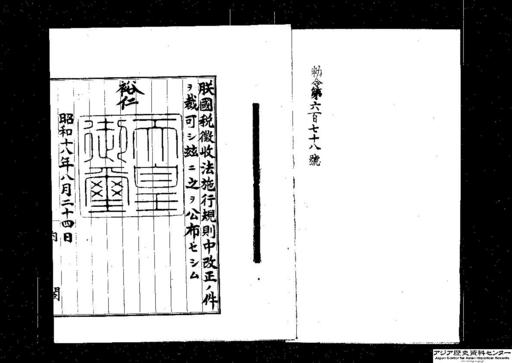 勅令第六百七十八號
朕國税徴收法施行規則中改正ノ件
ヲ裁可シ玆ニ之ヲ公布セシム
裕仁
天皇
御璽
昭和十八年八月二十四日
内閣
アジア歴史資料センター
Japan Center for Asian Historical Records